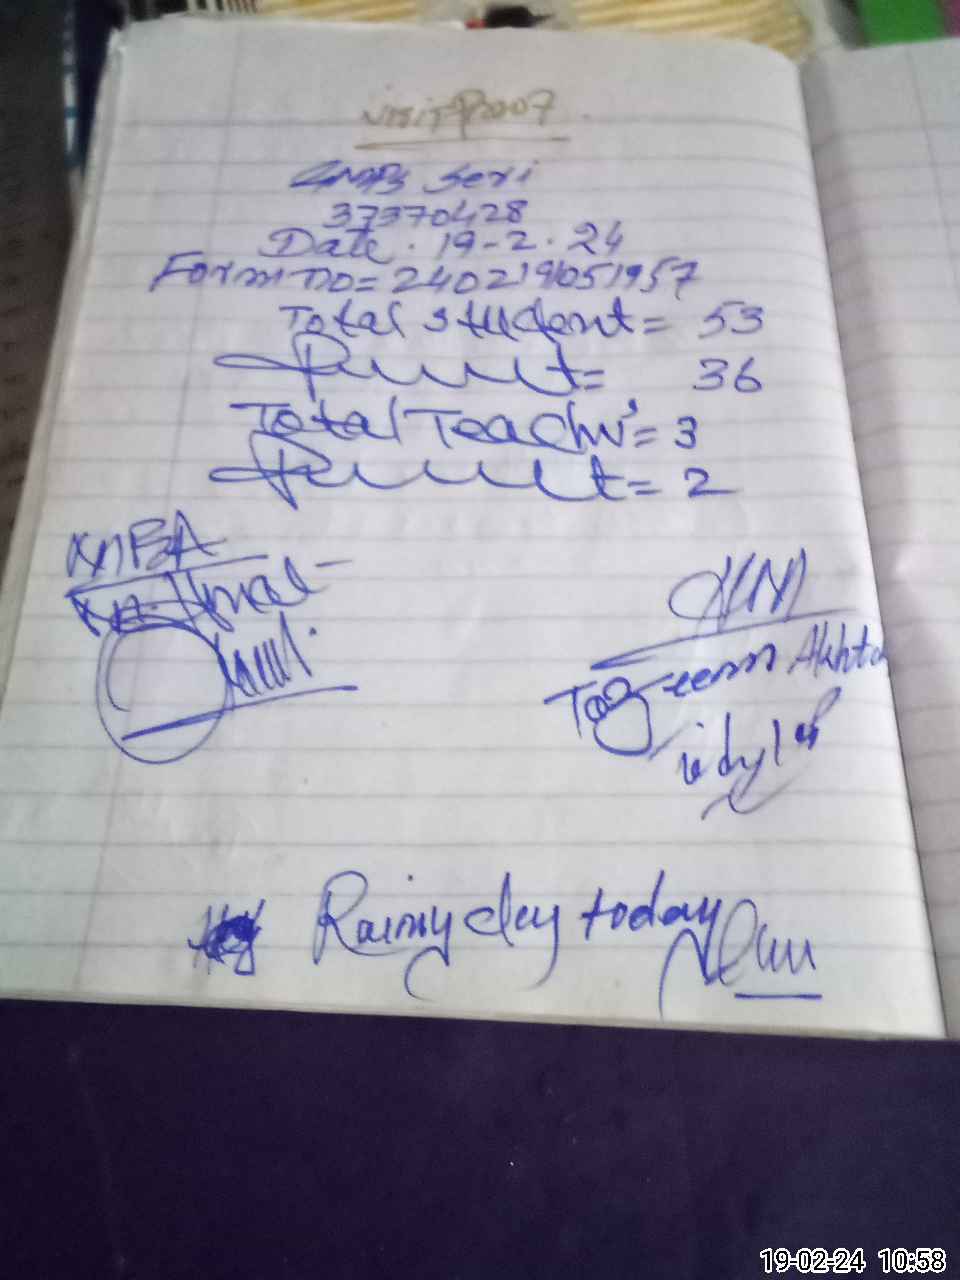 Visit Proof
GMPS Seri
37370428
Date. 19-2. 24
Form no = 240219051957
Total student = 53
Present = 36
Total Teacher's = 3
Present = 2
Tasneem Akhtar
Rainy day today
19-02-24 10:58